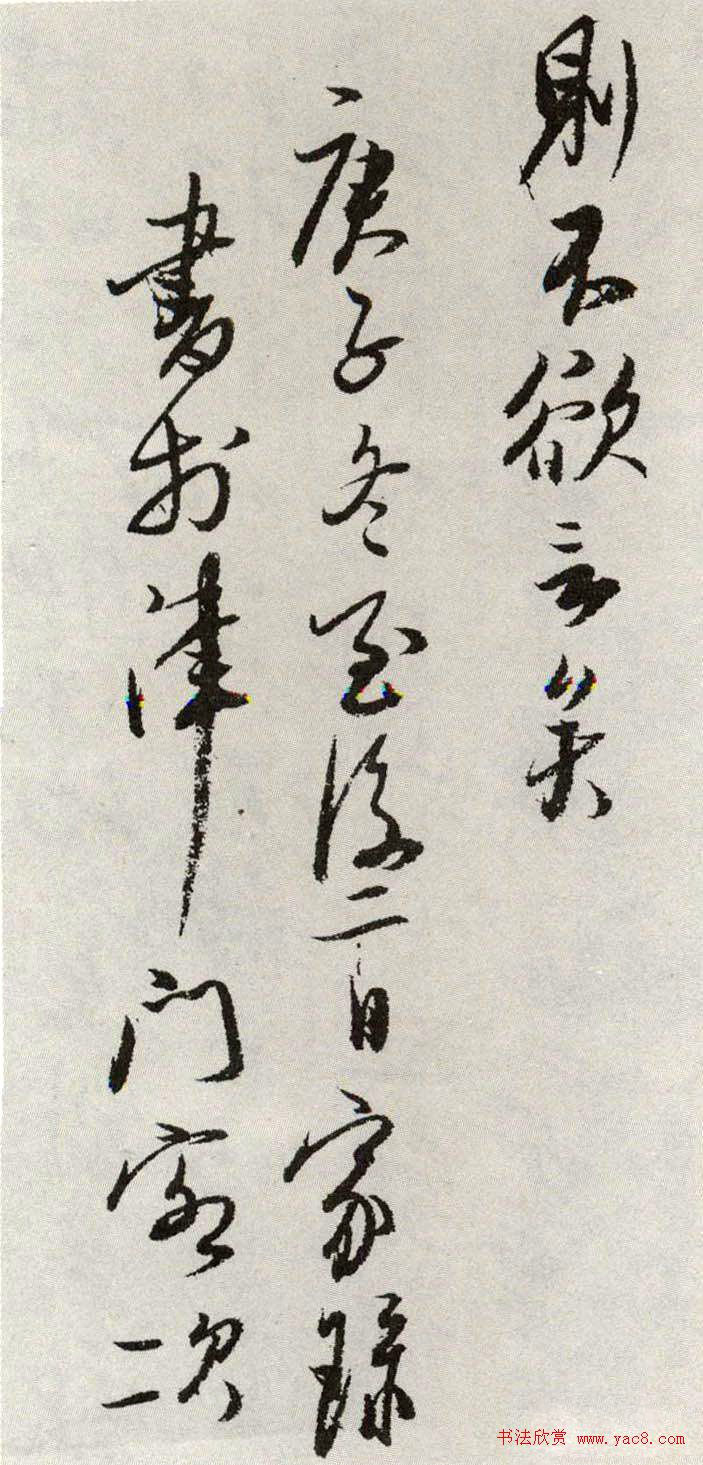 則不欲言矣
庚子冬至後二日家騄
書於津門客次
书法欣赏 www.yac8.com